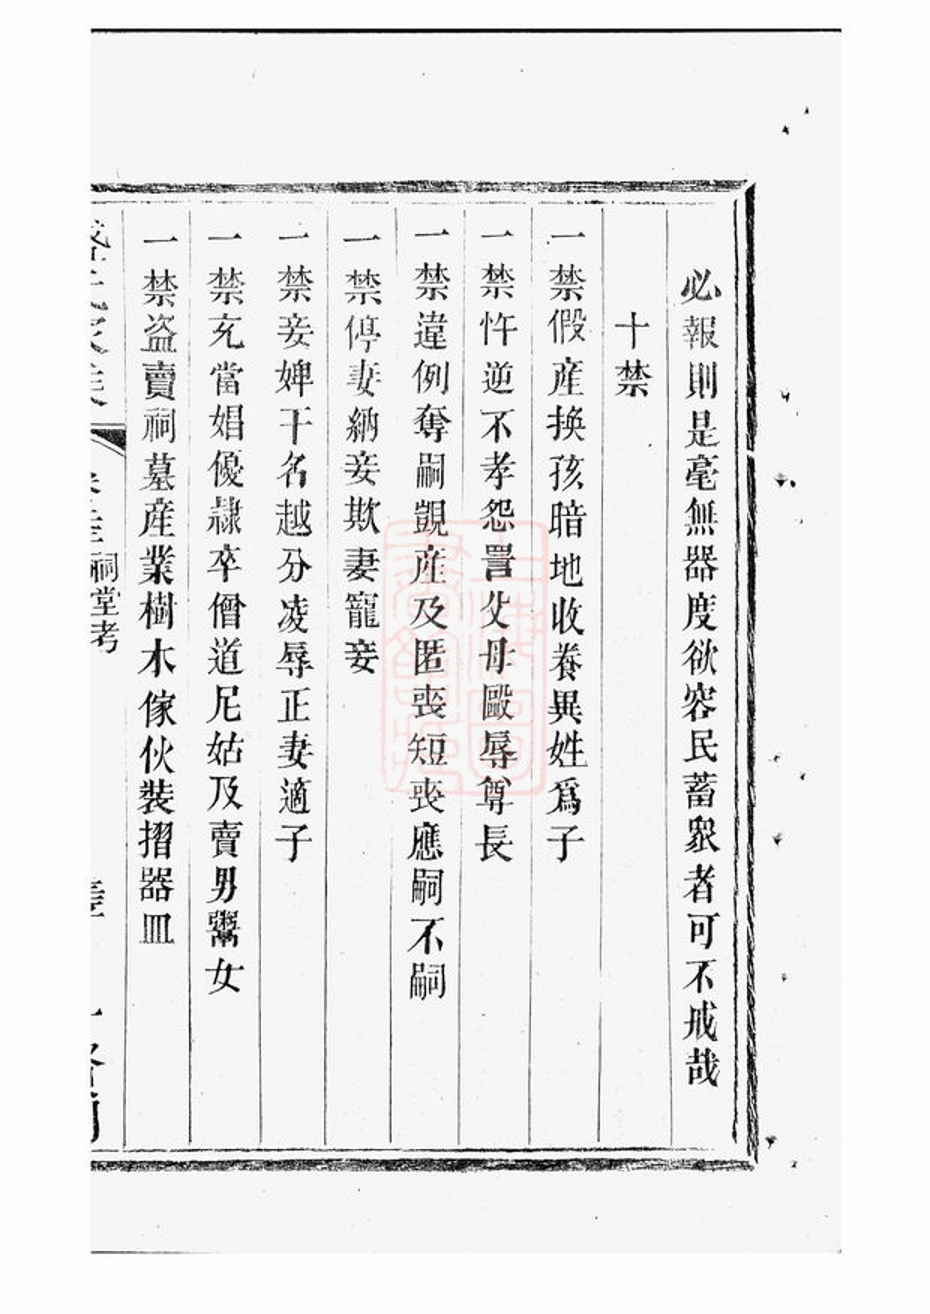 必報則是毫無器度欲容民蓄眾者可不戒哉
十禁
一禁假產換孩暗地收養異姓爲子
一禁忤逆不孝怨詈父母毆辱尊長
一禁違例奪嗣覬產及匿喪短喪應嗣不嗣
一禁停妻納妾欺妻寵妾
一禁妾婢干名越分凌辱正妻適子
一禁充當娼優隷卒僧道尼姑及賣男鬻女
一禁盜賣祠墓產業樹木傢伙裝摺器皿
祠堂考